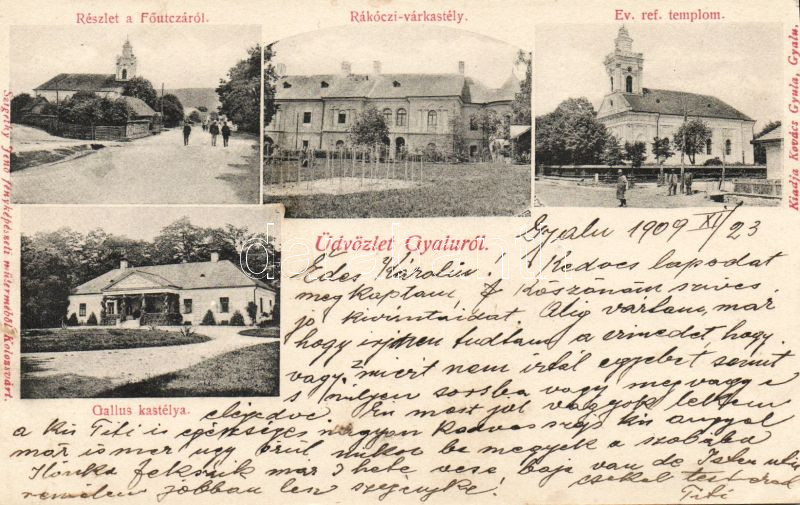 Részlet a Főutczáról.
Rákóczi-várkastély.
Ev. ref. templom.
Szigethy Jenő fényképészeti műterméből Kolozsvárt.
Kiadja Kovács Gyula, Gyalu.
Üdvözlet Gyaluról.
Gallus kastélya.
Gyalu 1909 XI/23
Édes Károlin. Kedves lapodat
megkaptam, köszönöm szives
jo kivánataidat. Alig vártam, már
hogy irjon tudtam a czimedet, hogy
vagy, miért nem irtál egyebet semit
s milyen sorsba vagy, meg vagy e
elégedve Én most jol vagyok lelkem
a kis Titi is egésséges nagyon kedves szép kis angyal
már ismer ugy örül mikor be megyek a szobába
Ilonka fekszik már 3 hete vese baja van de Isten
remélem jobban lesz szegényke!
csokol testvéred
Titi